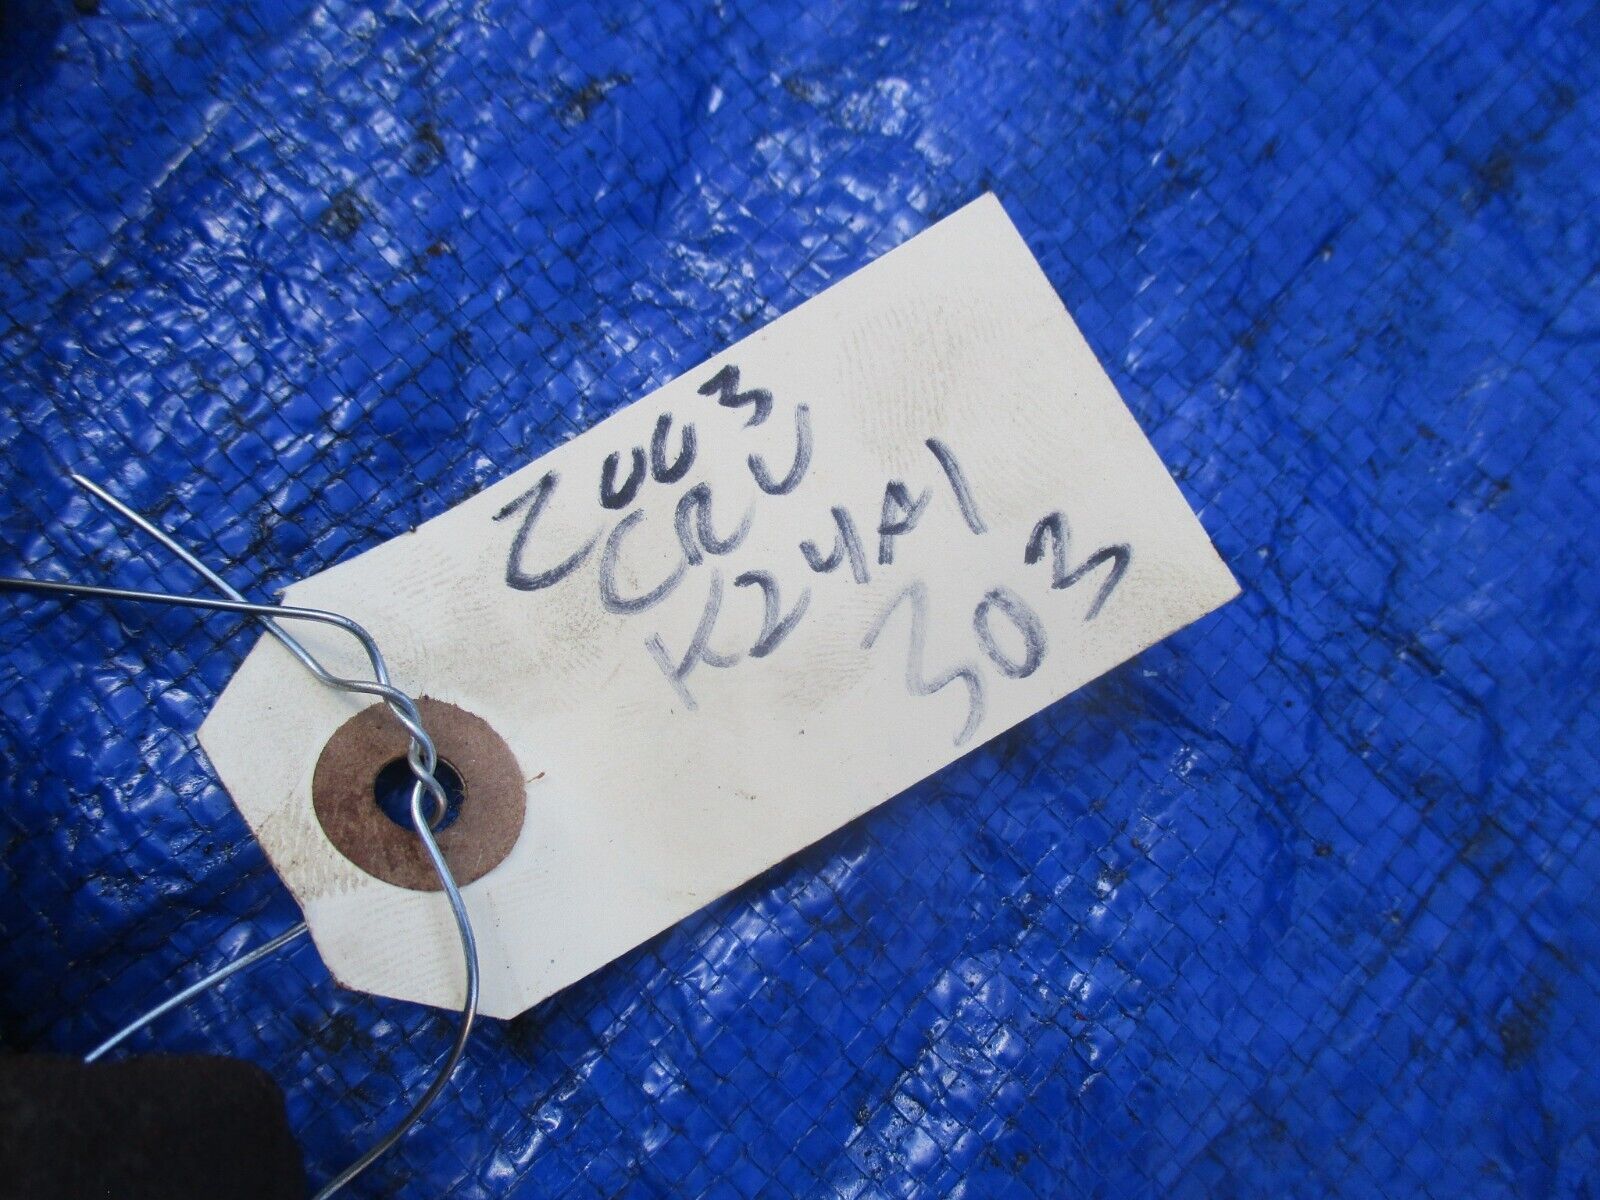 2003
CRV
K24A1
303